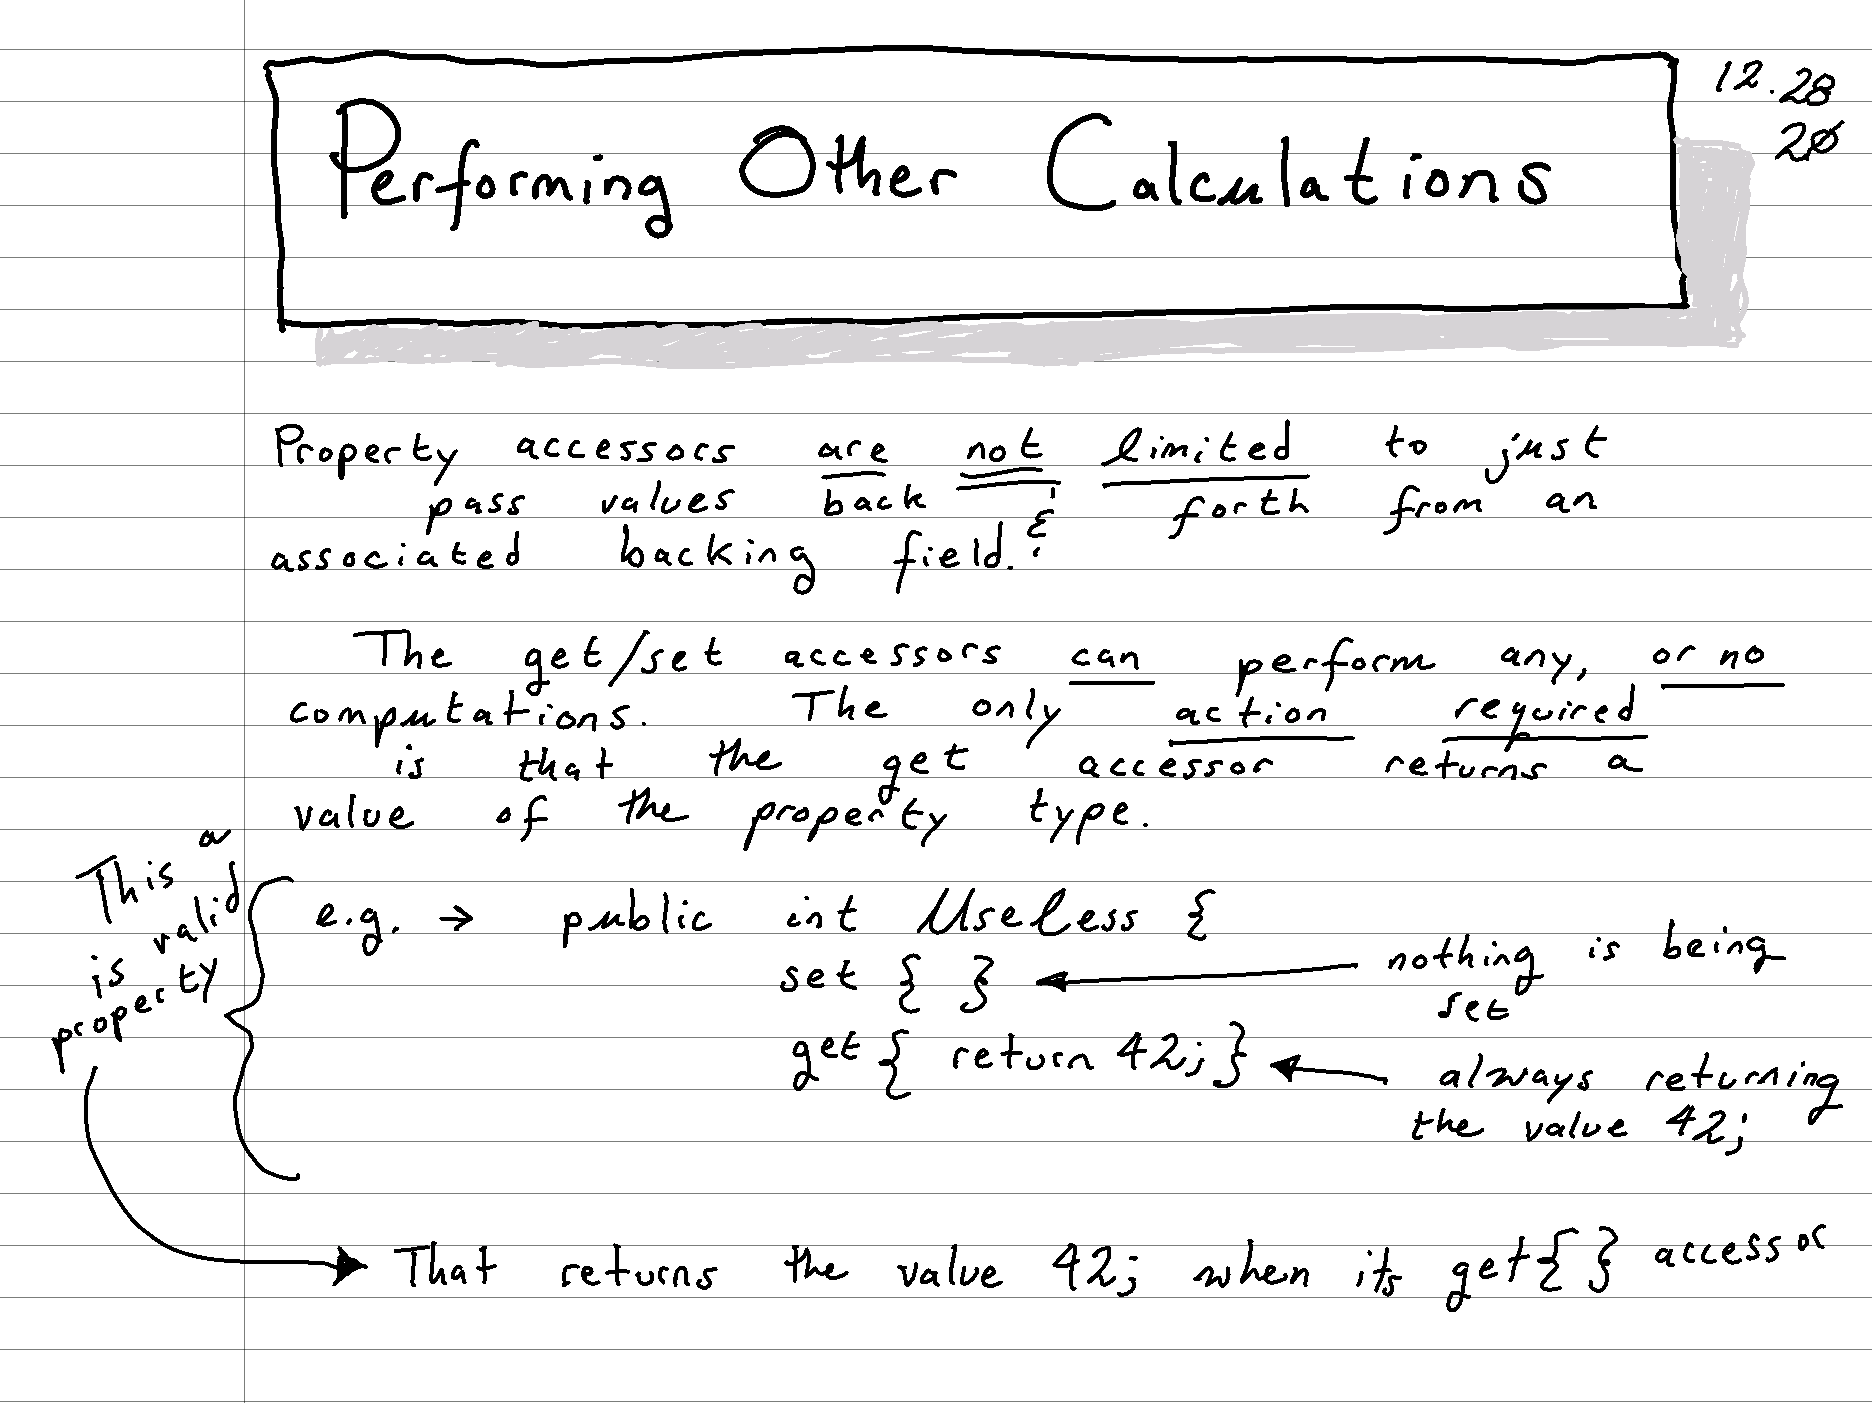 12.28
20
Performing Other Calculations
Property accessors are not limited to just
pass values back & forth from an
associated backing field.
The get/set accessors can perform any, or no
computations. The only action required
is that the get accessor returns a
value of the property type.
This is a
valid
property
e.g. → public int Useless {
set { } ← nothing is being
set
get { return 42; } ← always returning
the value 42;
That returns the value 42; when its get{ } accessor